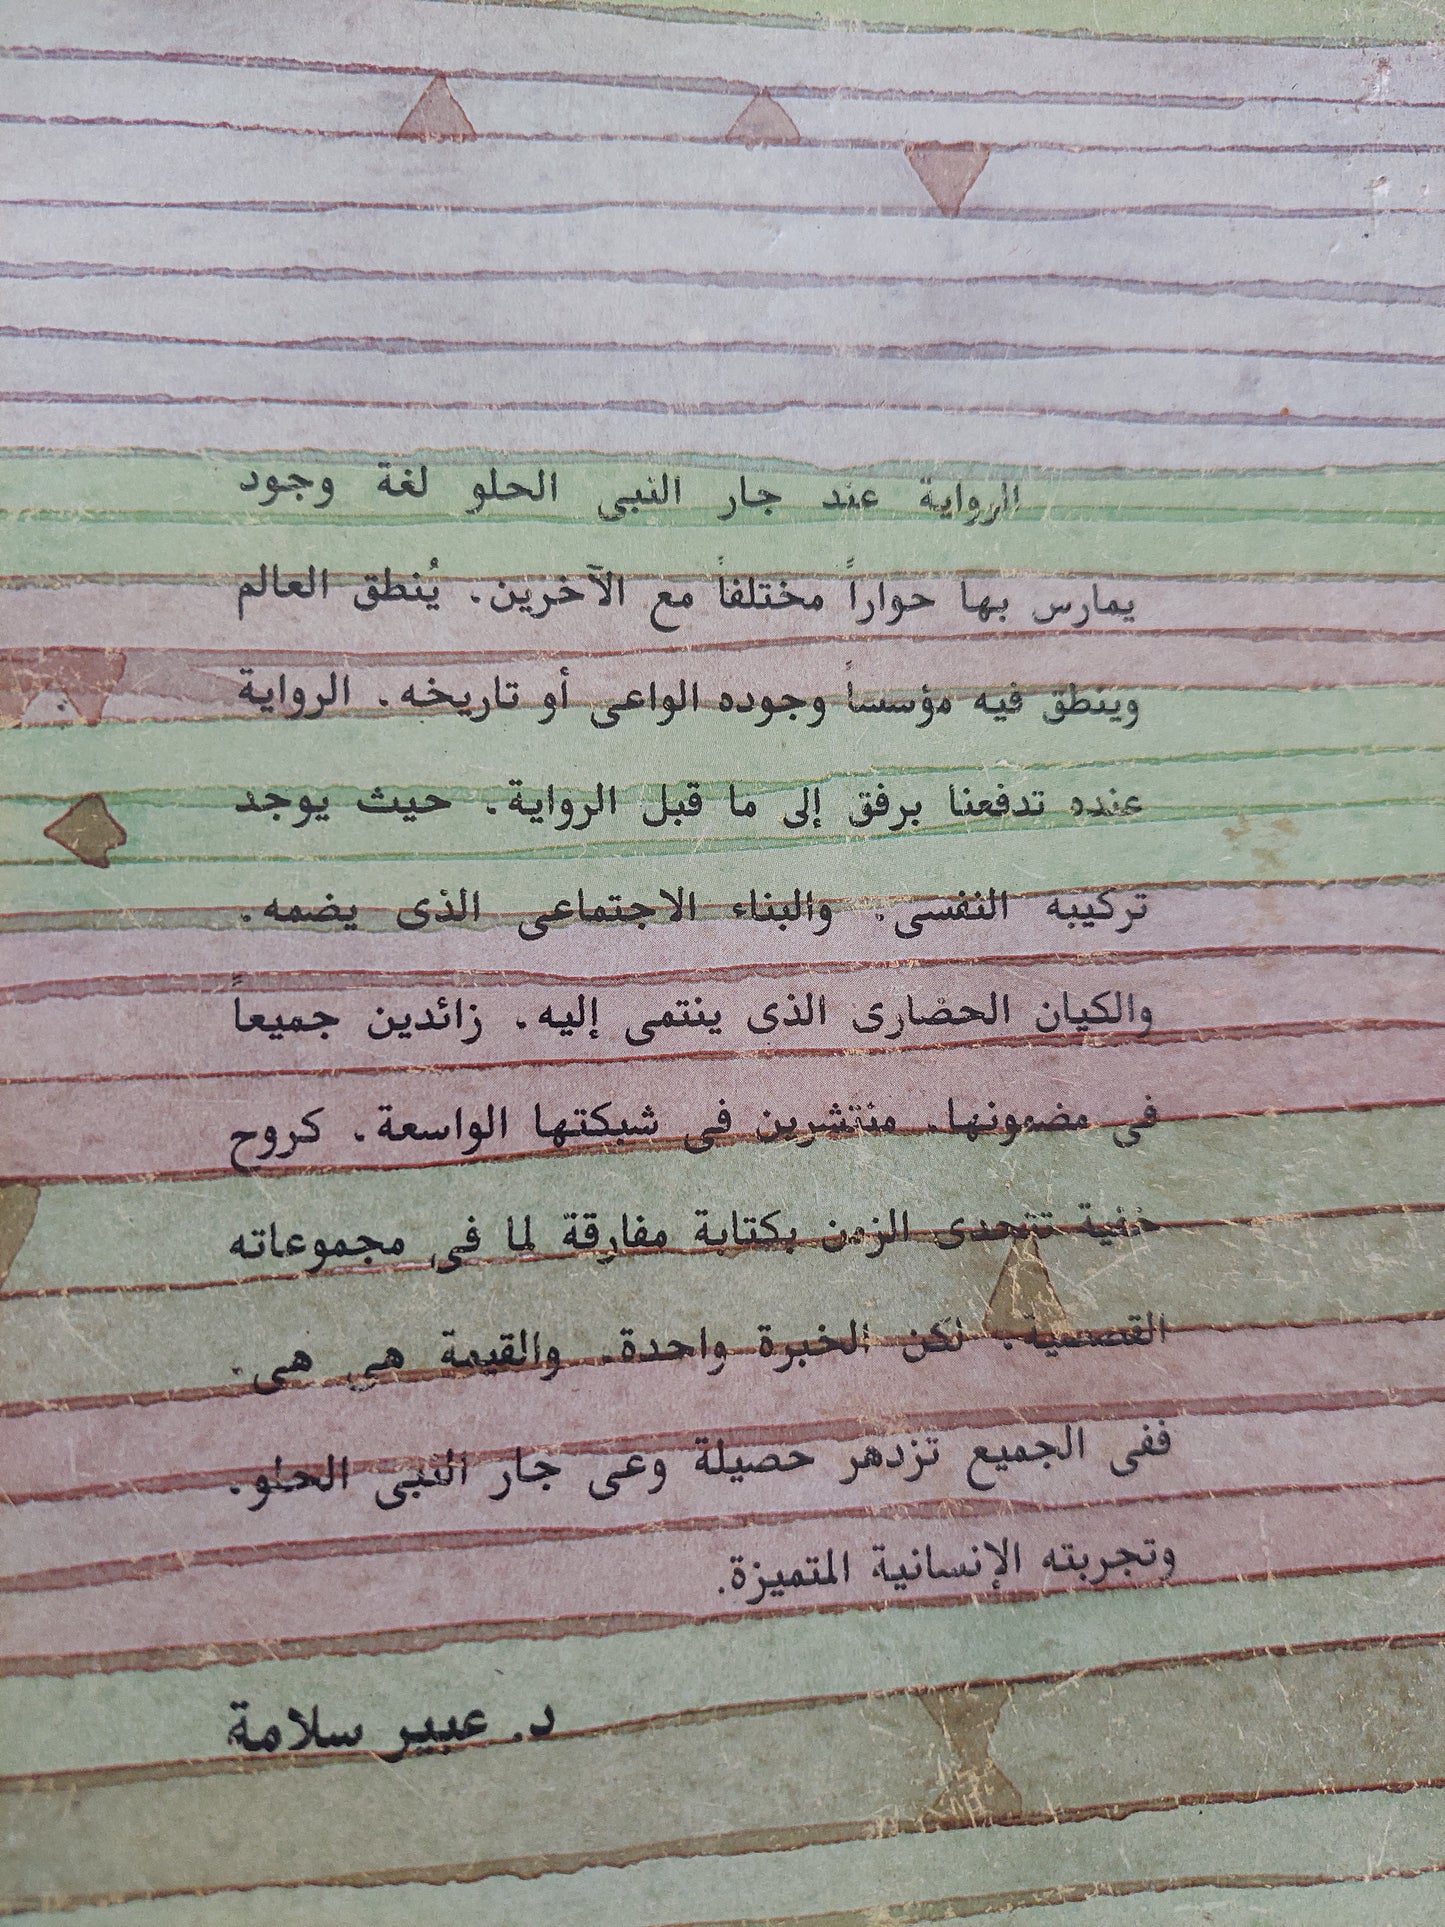 الرواية عند جار النبى الحلو لغة وجود
يمارس بها حواراً مختلفاً مع الآخرين. يُنطق العالم
وينطق فيه مؤسساً وجوده الواعى أو تاريخه. الرواية
عنده تدفعنا برفق إلى ما قبل الرواية. حيث يوجد
تركيبه النفسى. والبناء الاجتماعى الذى يضمه.
والكيان الحضارى الذى ينتمى إليه. زائدين جميعاً
فى مضمونها. منتشرين فى شبكتها الواسعة. كروح
خفية تتحدى الزمن بكتابة مفارقة لما فى مجموعاته
القصصية. لكن الخبرة واحدة. والقيمة هى هى.
ففى الجميع تزدهر حصيلة وعى جار النبى الحلو.
وتجربته الإنسانية المتميزة.
د. عبير سلامة